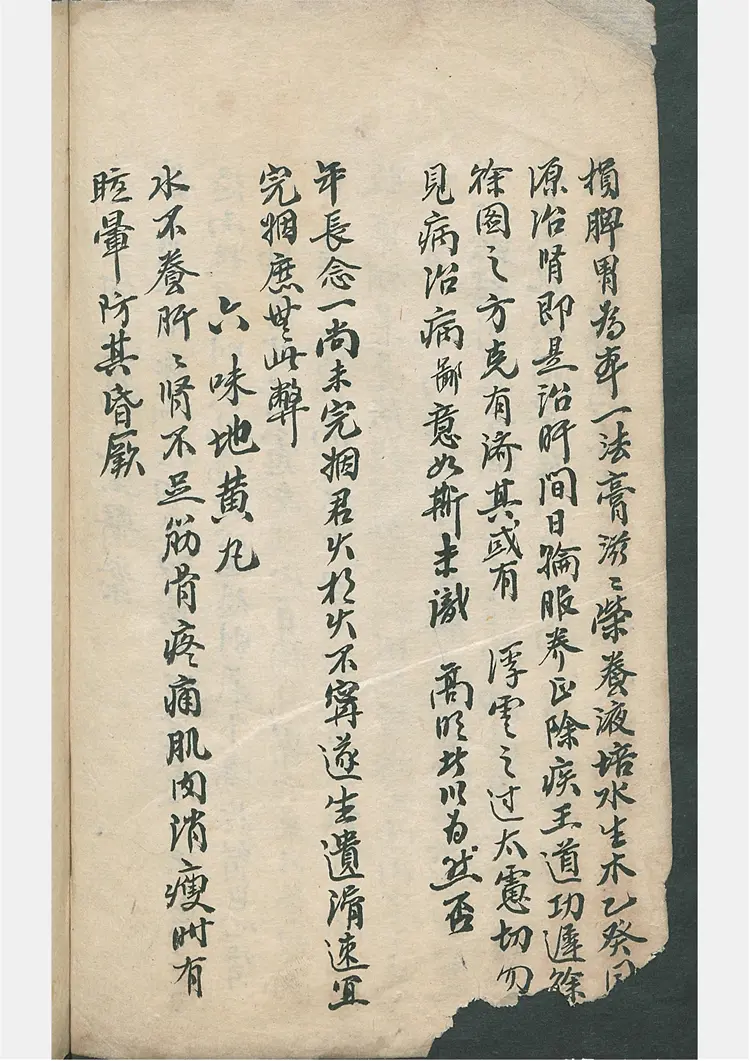 損脾胃為本一法膏滋〻榮養液培水生木乙癸同
源治腎即是治肝間日輪服养正除疾王道功遲徐
徐图之方克有济其或有 浮雲之过太虛切勿
見病治病鄙意如斯未識 高明皆以为然否
年長念一尚未完姻君火相火不寧遂生遺滑速宜
完姻庶無此弊
六味地黄丸
水不養肝〻腎不足筋骨疼痛肌肉消瘦时有
眩暈防其昏厥